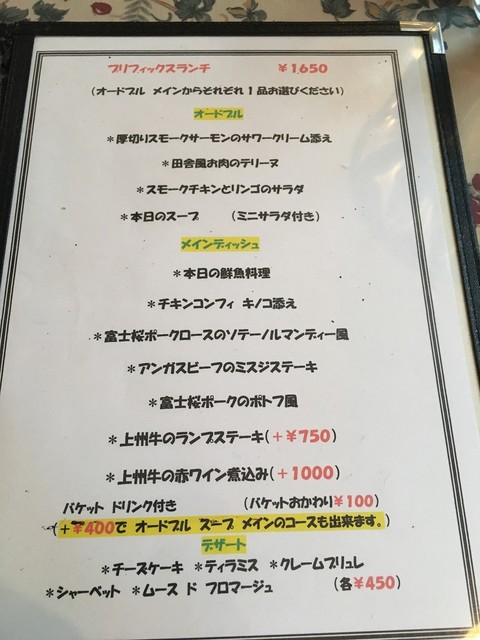 プリフィックスランチ ￥1,650
(オードブル メインからそれぞれ1品お選びください)
オードブル
＊厚切りスモークサーモンのサワークリーム添え
＊田舎風お肉のテリーヌ
＊スモークチキンとリンゴのサラダ
＊本日のスープ (ミニサラダ付き)
メインディッシュ
＊本日の鮮魚料理
＊チキンコンフィ キノコ添え
＊富士桜ポークロースのソテーノルマンディー風
＊アンガスビーフのミスジステーキ
＊富士桜ポークのポトフ風
＊上州牛のランプステーキ(＋￥750)
＊上州牛の赤ワイン煮込み(＋1000)
バケット ドリンク付き (バケットおかわり￥100)
(＋￥400で オードブル スープ メインのコースも出来ます。)
デザート
＊チーズケーキ ＊ティラミス ＊クレームブリュレ
＊シャーベット ＊ムース ド フロマージュ (各￥450)